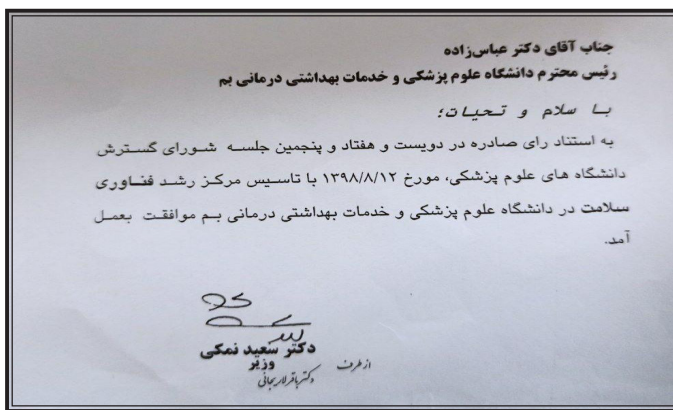 جناب آقای دکتر عباس‌زاده
رئیس محترم دانشگاه علوم پزشکی و خدمات بهداشتی درمانی بم
با سلام و تحیات؛
به استناد رای صادره در دویست و هفتاد و پنجمین جلسه شورای گسترش
دانشگاه های علوم پزشکی، مورخ ۱۳۹۸/۸/۱۲ با تاسیس مرکز رشد فناوری
سلامت در دانشگاه علوم پزشکی و خدمات بهداشتی درمانی بم موافقت بعمل
آمد.
دکتر سعید نمکی
وزیر
از طرف
دکتر باقر لاریجانی